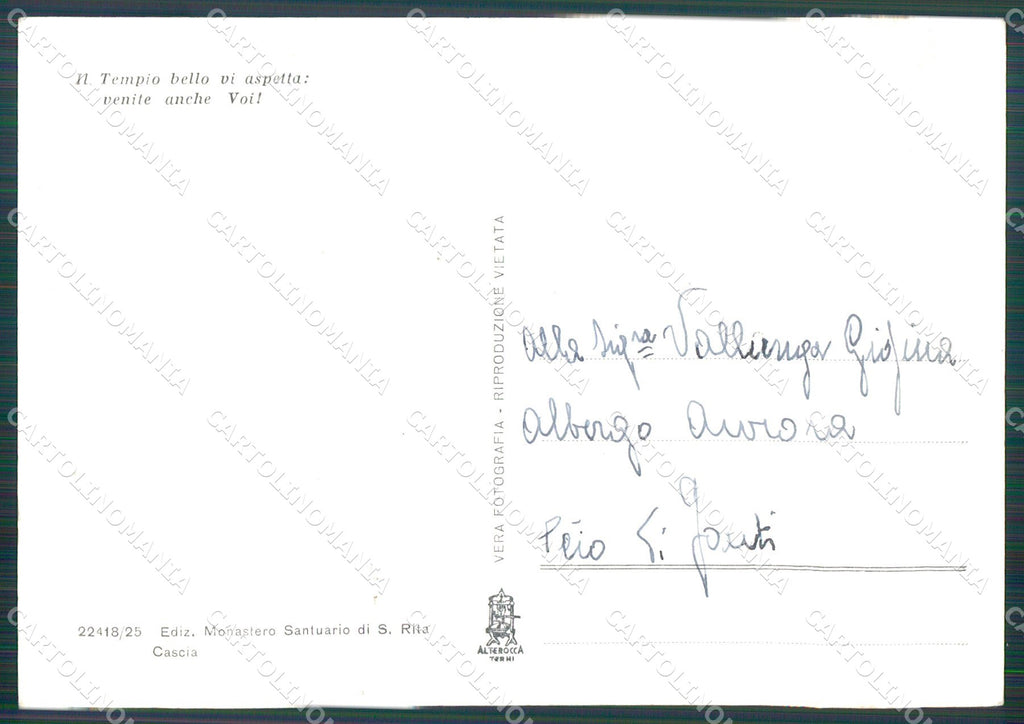 Il Tempio bello vi aspetta:
venite anche Voi!
VERA FOTOGRAFIA - RIPRODUZIONE VIETATA
Alla Sigra
Albergo Aurora
Peio
22418/25 Ediz. Monastero Santuario di S. Rita
Cascia
ALTEROCCA
TERNI
CARTOLINOMANIA